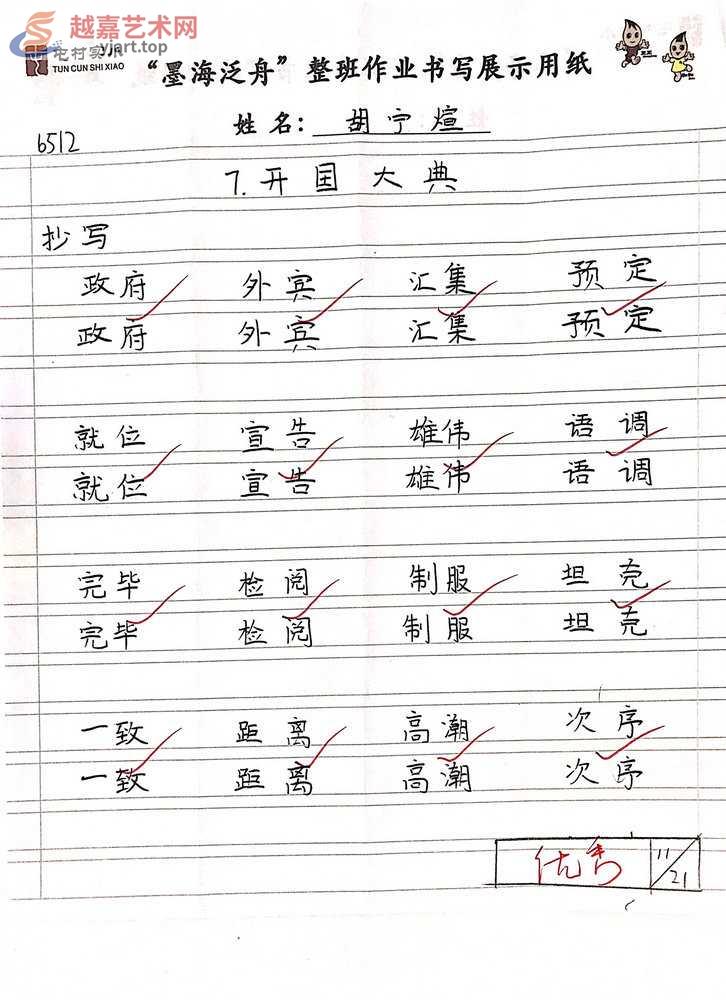 越嘉艺术网
yjart.top
TUN CUN SHI XIAO
“墨海泛舟”整班作业书写展示用纸
姓名: 胡宁煊
6512
7.开国大典
抄写
政府 外宾 汇集 预定
政府 外宾 汇集 预定
就位 宣告 雄伟 语调
就位 宣告 雄伟 语调
完毕 检阅 制服 坦克
完毕 检阅 制服 坦克
一致 距离 高潮 次序
一致 距离 高潮 次序
优秀 11/21